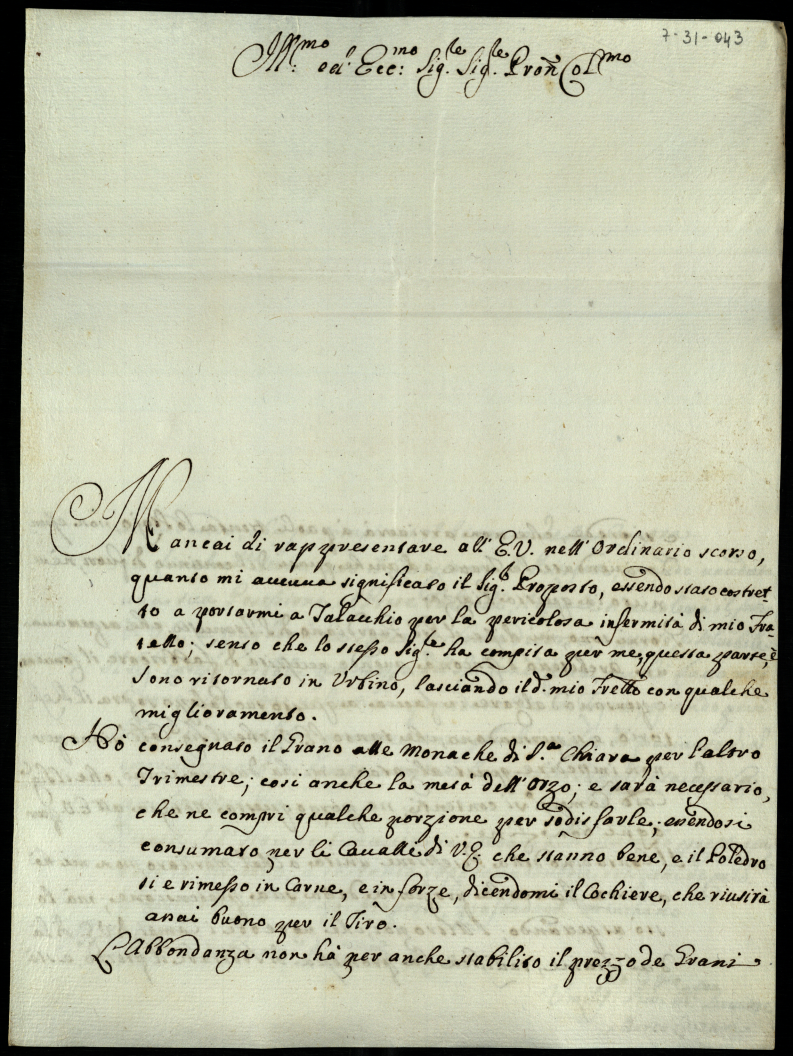 7-31-043
Ill:mo ed Ecc:mo Sig.re Sig.re Pron Col.mo
Mancai di rappresentare all'E.V. nell'Ordinario scorso,
quanto mi aueua significato il Sig.r Proposto, essendo stato costret-
to a portarmi a Talacchio per la pericolosa infermità di mio Fra-
tello; sento che lo stesso Sig.re ha compita per me questa parte, e
sono ritornato in Urbino, lasciando il d.o mio Frello con qualche
miglioramento.
Hò consegnato il Grano alle Monache di S.a Chiara per l'altro
Trimestre; così anche la metà dell'Orzo; e sarà necessario,
che ne compri qualche porzione per sodisfarle, essendosi
consumato per li Cavalli di V.E. che stanno bene, e il Poledro
si e rimesso in Carne, e in forze, dicendomi il Cochiere, che riuscirà
assai buono per il Tiro.
L'Abbondanza non hà per anche stabilito il prezzo de Grani